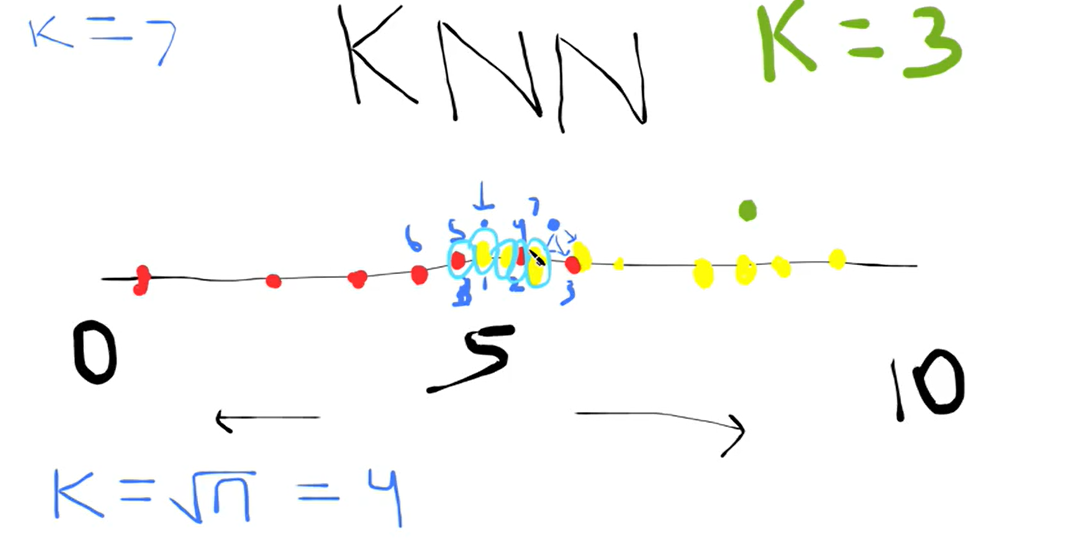 K = 7
KNN
K = 3
6 5 1 4 7
1 2 3
0 5 10
K = √n = 4